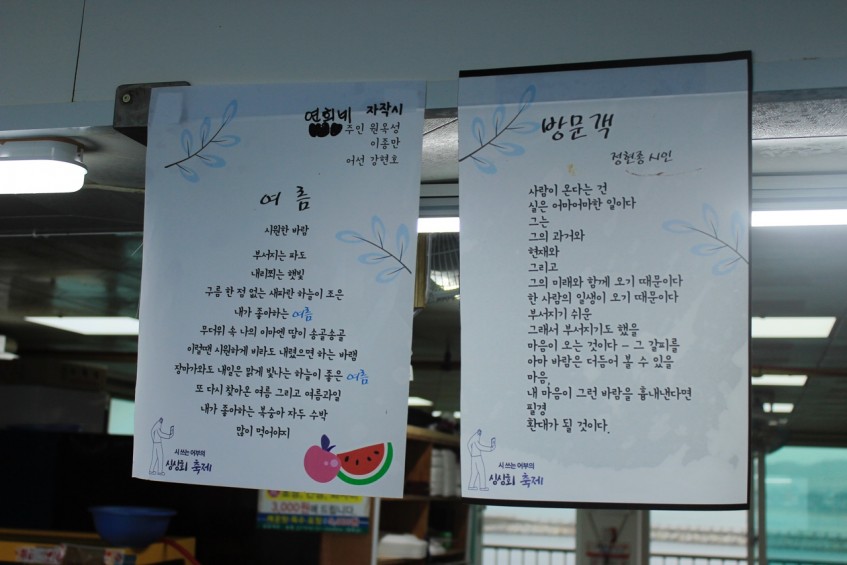 연희네 자작시
주인 원옥성
이종만
어선 강현호
여 름
시원한 바람
부서지는 파도
내리쬐는 햇빛
구름 한 점 없는 새파란 하늘이 조은
내가 좋아하는 여름
무더위 속 나의 이마엔 땀이 송골송골
이럴땐 시원하게 비라도 내렸으면 하는 바램
장마가와도 내일은 맑게 빛나는 하늘이 좋은 여름
또 다시 찾아온 여름 그리고 여름과일
내가 좋아하는 복숭아 자두 수박
많이 먹어야지
시 쓰는 어부의
싱싱회 축제
방문객
정현종 시인
사람이 온다는 건
실은 어마어마한 일이다
그는
그의 과거와
현재와
그리고
그의 미래와 함께 오기 때문이다
한 사람의 일생이 오기 때문이다
부서지기 쉬운
그래서 부서지기도 했을
마음이 오는 것이다 – 그 갈피를
아마 바람은 더듬어 볼 수 있을
마음,
내 마음이 그런 바람을 흉내낸다면
필경
환대가 될 것이다.
시 쓰는 어부의
싱싱회 축제
3,000원에 드립니다.